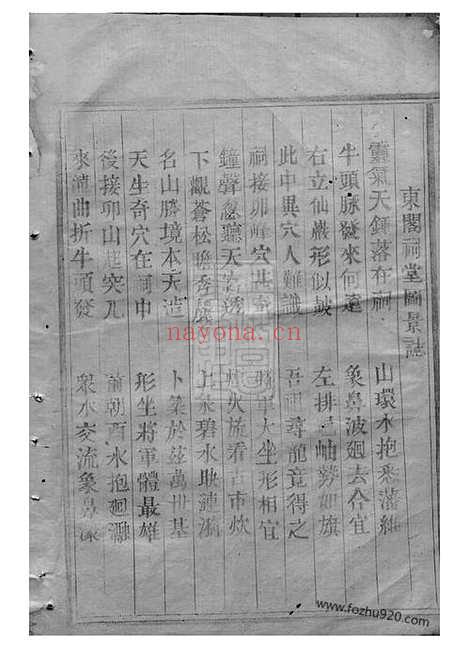 東閣祠堂圖景誌
靈氣天鍾落在祠 山環水抱悉藩維
牛頭脉發來何遠 象鼻波廻去合宜
右立仙巖形似鼓 左排 岫 如旗
此中異穴人難識 吾祖尋龍竟得之
祠接卯峰穴 將軍大坐形相宜
鐘聲忽聽天 火旋看古市炊
下觀蒼松 上 碧水映漣漪
名山勝境本天造 卜築於茲萬世基
天生奇穴在祠中 形坐將軍體最雄
後接卯山 突兀 前朝酉水抱廻瀜
來 曲折牛頭發 衆水交流象鼻
nayona.cn
www.fozhu920.com